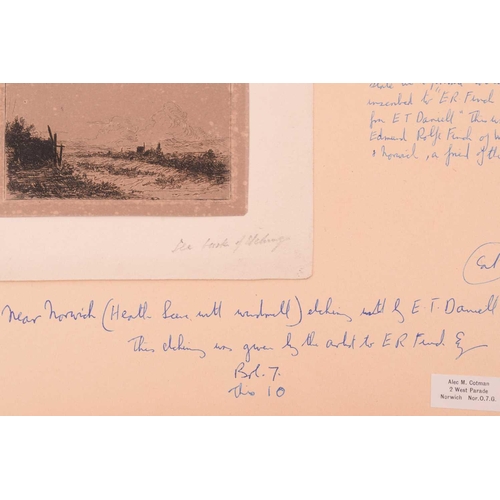 inscribed to "E R Fund
from E T Daniell" This w
Edward Rolfe Fund of
& Norwich, a friend of th
Near Norwich (Heath Scene with windmill) etching by E. T. Daniell
This etching was given by the artist to E R Fund Esq
Bol. 7.
Thio 10
Alec M. Cotman
7 West Parade
Norwich Nor.0.7.G.